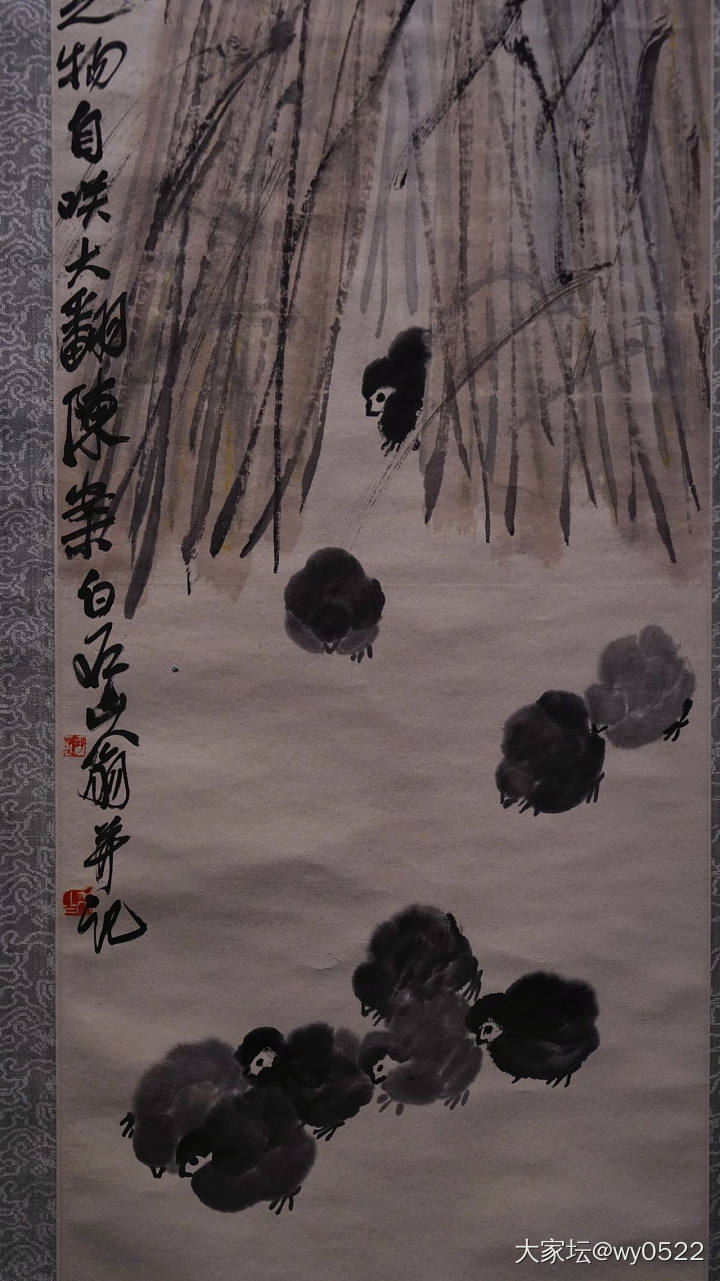 之物自咲大翻陳案白石山翁并记
大家坛@wy0522